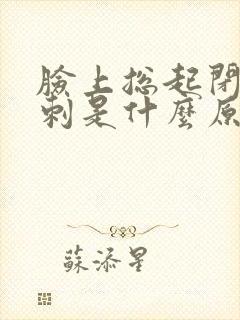 臉上總起閉
刺是什麼原
蘇添星